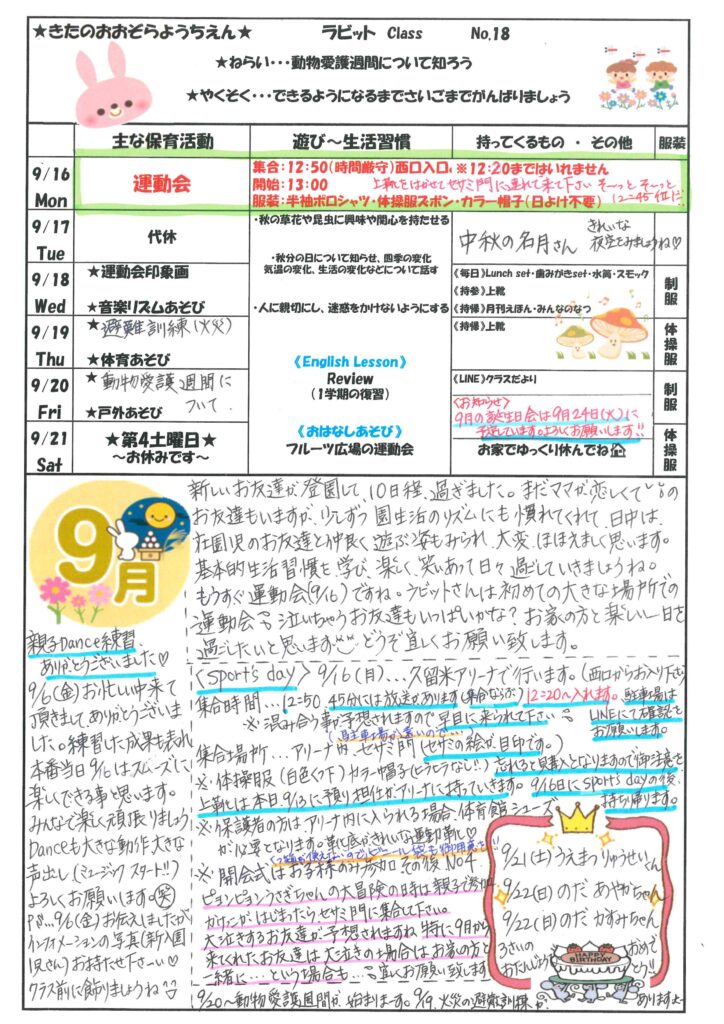 ★きたのおおぞらようちえん★ ラビット Class No.18
★ねらい・・・動物愛護週間について知ろう
★やくそく・・・できるようになるまでさいごまでがんばりましょう
主な保育活動 遊び～生活習慣 持ってくるもの ・ その他 服装
9/16
Mon
運動会
集合：12:50（時間厳守）西口入口。※12:20まではいれません
開始：13:00 上靴をはかせてセサミ門に連れて来て下さい そ～っと そ～っと
服装：半袖ポロシャツ・体操服ズボン・カラー帽子（日よけ不要） 12=45位に
9/17
Tue
代休
・秋の草花や昆虫に興味や関心を持たせる
・秋分の日について知らせ、四季の変化
気温の変化、生活の変化などについて話す
中秋の名月さん きれいな
夜空をみましょうね♡
9/18
Wed
★運動会印象画
★音楽リズムあそび
・人に親切にし、迷惑をかけないようにする
《毎日》Lunch set・歯みがきset・水筒・スモック
《持参》上靴
《持帰》月刊えほん・みんなのなつ
制服
9/19
Thu
★避難訓練(火災)
★体育あそび
《持帰》上靴
体操服
《English Lesson》
Review
（1学期の復習）
9/20
Fri
★動物愛護週間に
ついて.
★戸外あそび
《LINE》クラスだより
<お知らせ>
9月の誕生日会は9月24日(火)に
予定しています。よろしくお願いします!!
制服
9/21
Sat
★第4土曜日★
～お休みです～
《おはなしあそび》
フルーツ広場の運動会
お家でゆっくり休んでね
体操服
9月
新しいお友達が登園して、10日程、過ぎました。まだママが恋しくて
お友達もいますが、少しずつ園生活のリズムにも慣れてくれて、日中は、
在園児のお友達と仲良く遊ぶ姿もみられ、大変、ほほえましく思います。
基本的生活習慣を学び、楽しく、笑いあって日々過ごしていきましょうね。
もうすぐ運動会(9/16)ですね。ラビットさんは初めての大きな場所での
運動会 泣いちゃうお友達もいっぱいかな? お家の方と楽しい一日を
過ごしたいと思います どうぞ宜しくお願い致します。
親子Dance練習、
ありがとうございました♡
9/6(金)お忙しい中来て
頂きましてありがとうございま
した。練習した成果も表れ
本番当日9/16はスムーズに
楽しくできる事と思います。
みんなで楽しく頑張りましょう
Danceも大きな動作大きな
声出し(ミュージックスタート!!)
よろしくお願いします。(笑)
P.S…9/6(金)お伝えしましたが
インフォメーションの写真(新入園
児さん)お持たせ下さい♡
クラス前に飾りましょうね
<sport's day> 9/16(月)…久留米アリーナで行います。(西口からお入り下さい)
集合時間…12=50、45分には放送があります(集合ならぶ) 12=20～入れます。駐車場は
※混み合う事が予想されますので早目に来られて下さい LINEにて確認を
お願いします。
集合場所…アリーナ内・セサミ門 (セサミの絵が目印です。)
※体操服(白色くつ下)カラー帽子(ヒラヒラなし!!)忘れると購入となりますので御注意を
上靴は本日9/13に預り担任がアリーナに持っていきます。9/16日にsports dayの後、
持ち帰ります。
※保護者の方はアリーナ内に入られる場合、体育館シューズ
が必要となります。靴底がきれいな運動靴♡
※開会式はお子様のみ参加 その後 No4
ピョンピョンうさぎちゃんの大冒険の時は親子参加
がはじまったらセサミ門に集合して下さい。
大泣きするお友達が予想されますね 特に9月から
来てくれたお友達は大泣きの場合はお家の方と
一緒に…という場合も… 宜しくお願い致します
9/21(土)うえまつりゅうせいくん
9/22(日)のだ あやかちゃん
9/22(日)のだ かすみちゃん
おたんじょうび
おめで
とう!!
HAPPY
BIRTHDAY
9/20～動物愛護週間が始まります。9/19、火災の避難訓練が、 ありますよ～